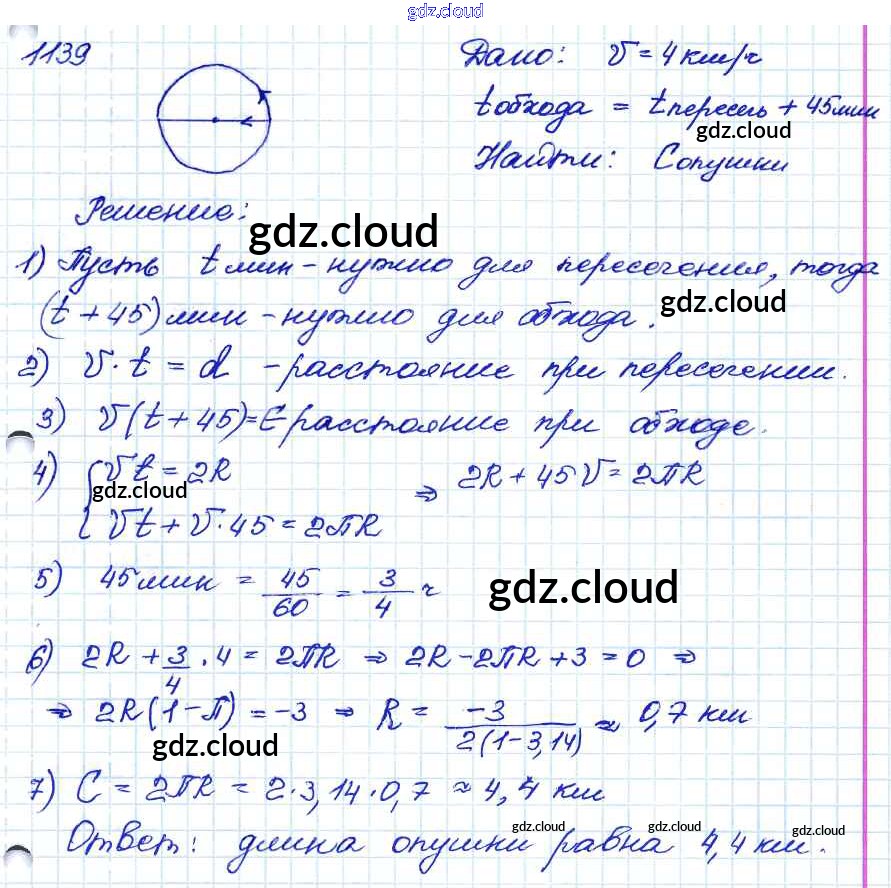 gdz.cloud
1139
Дано: v = 4 км/ч
t обхода = t пересеч + 45 мин
gdz.cloud
Найти: C опушки
Решение:
gdz.cloud
1) Пусть t мин - нужно для пересечения, тогда
(t + 45) мин - нужно для обхода.
gdz.cloud
2) v · t = d - расстояние при пересечении.
3) v(t + 45) = C расстояние при обходе.
4) { vt = 2R
vt + v · 45 = 2πR ⇒ 2R + 45v = 2πR
gdz.cloud
5) 45 мин = 45/60 = 3/4 ч
gdz.cloud
6) 2R + 3/4 · 4 = 2πR ⇒ 2R - 2πR + 3 = 0 ⇒
⇒ 2R(1 - π) = -3 ⇒ R = -3/2(1 - 3,14) ≈ 0,7 км
gdz.cloud
7) C = 2πR = 2 · 3,14 · 0,7 ≈ 4,4 км
gdz.cloud gdz.cloud gdz.cloud
Ответ: длина опушки равна 4,4 км.